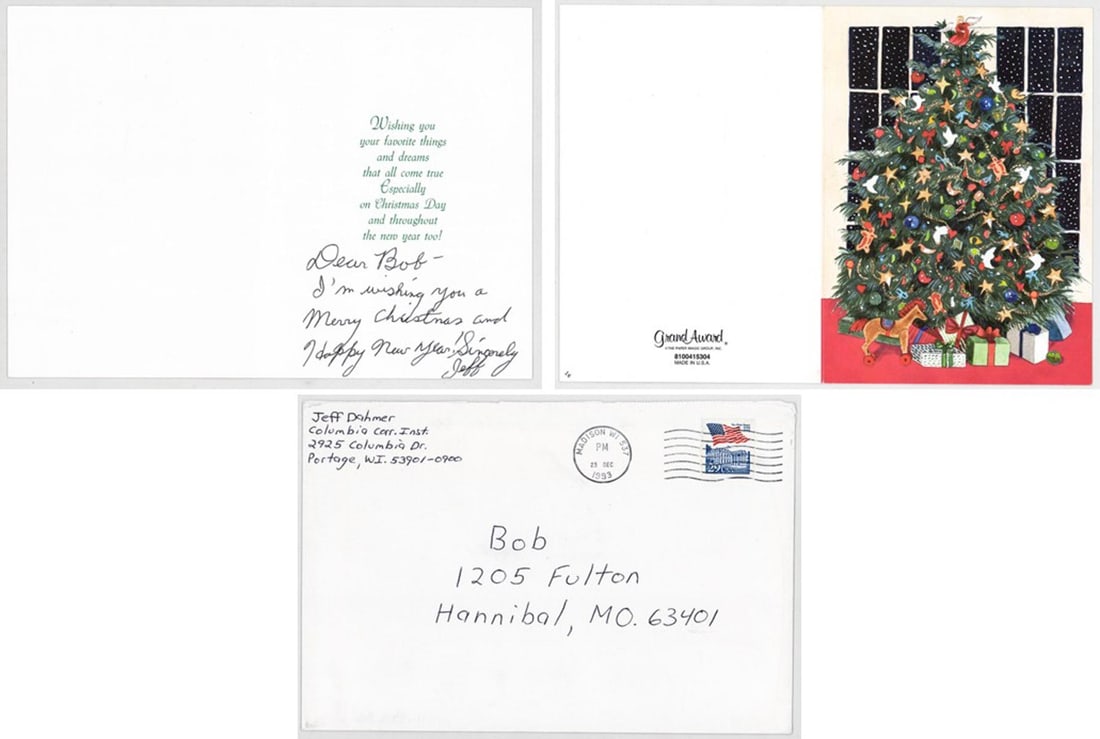 Wishing you
your favorite things
and dreams
that all come true
Especially
on Christmas Day
and throughout
the new year too!
Dear Bob-
I'm wishing you a
Merry Christmas and
Happy New Year! Sincerely
Jeff
Grand Award®
©THE PAPER MAGIC GROUP, INC.
8100415304
MADE IN U.S.A.
Jeff Dahmer
Columbia Corr. Inst.
2925 Columbia Dr.
Portage, WI. 53901-0900
MADISON WI 537
PM
23 DEC
1993
29
Bob
1205 Fulton
Hannibal, MO. 63401